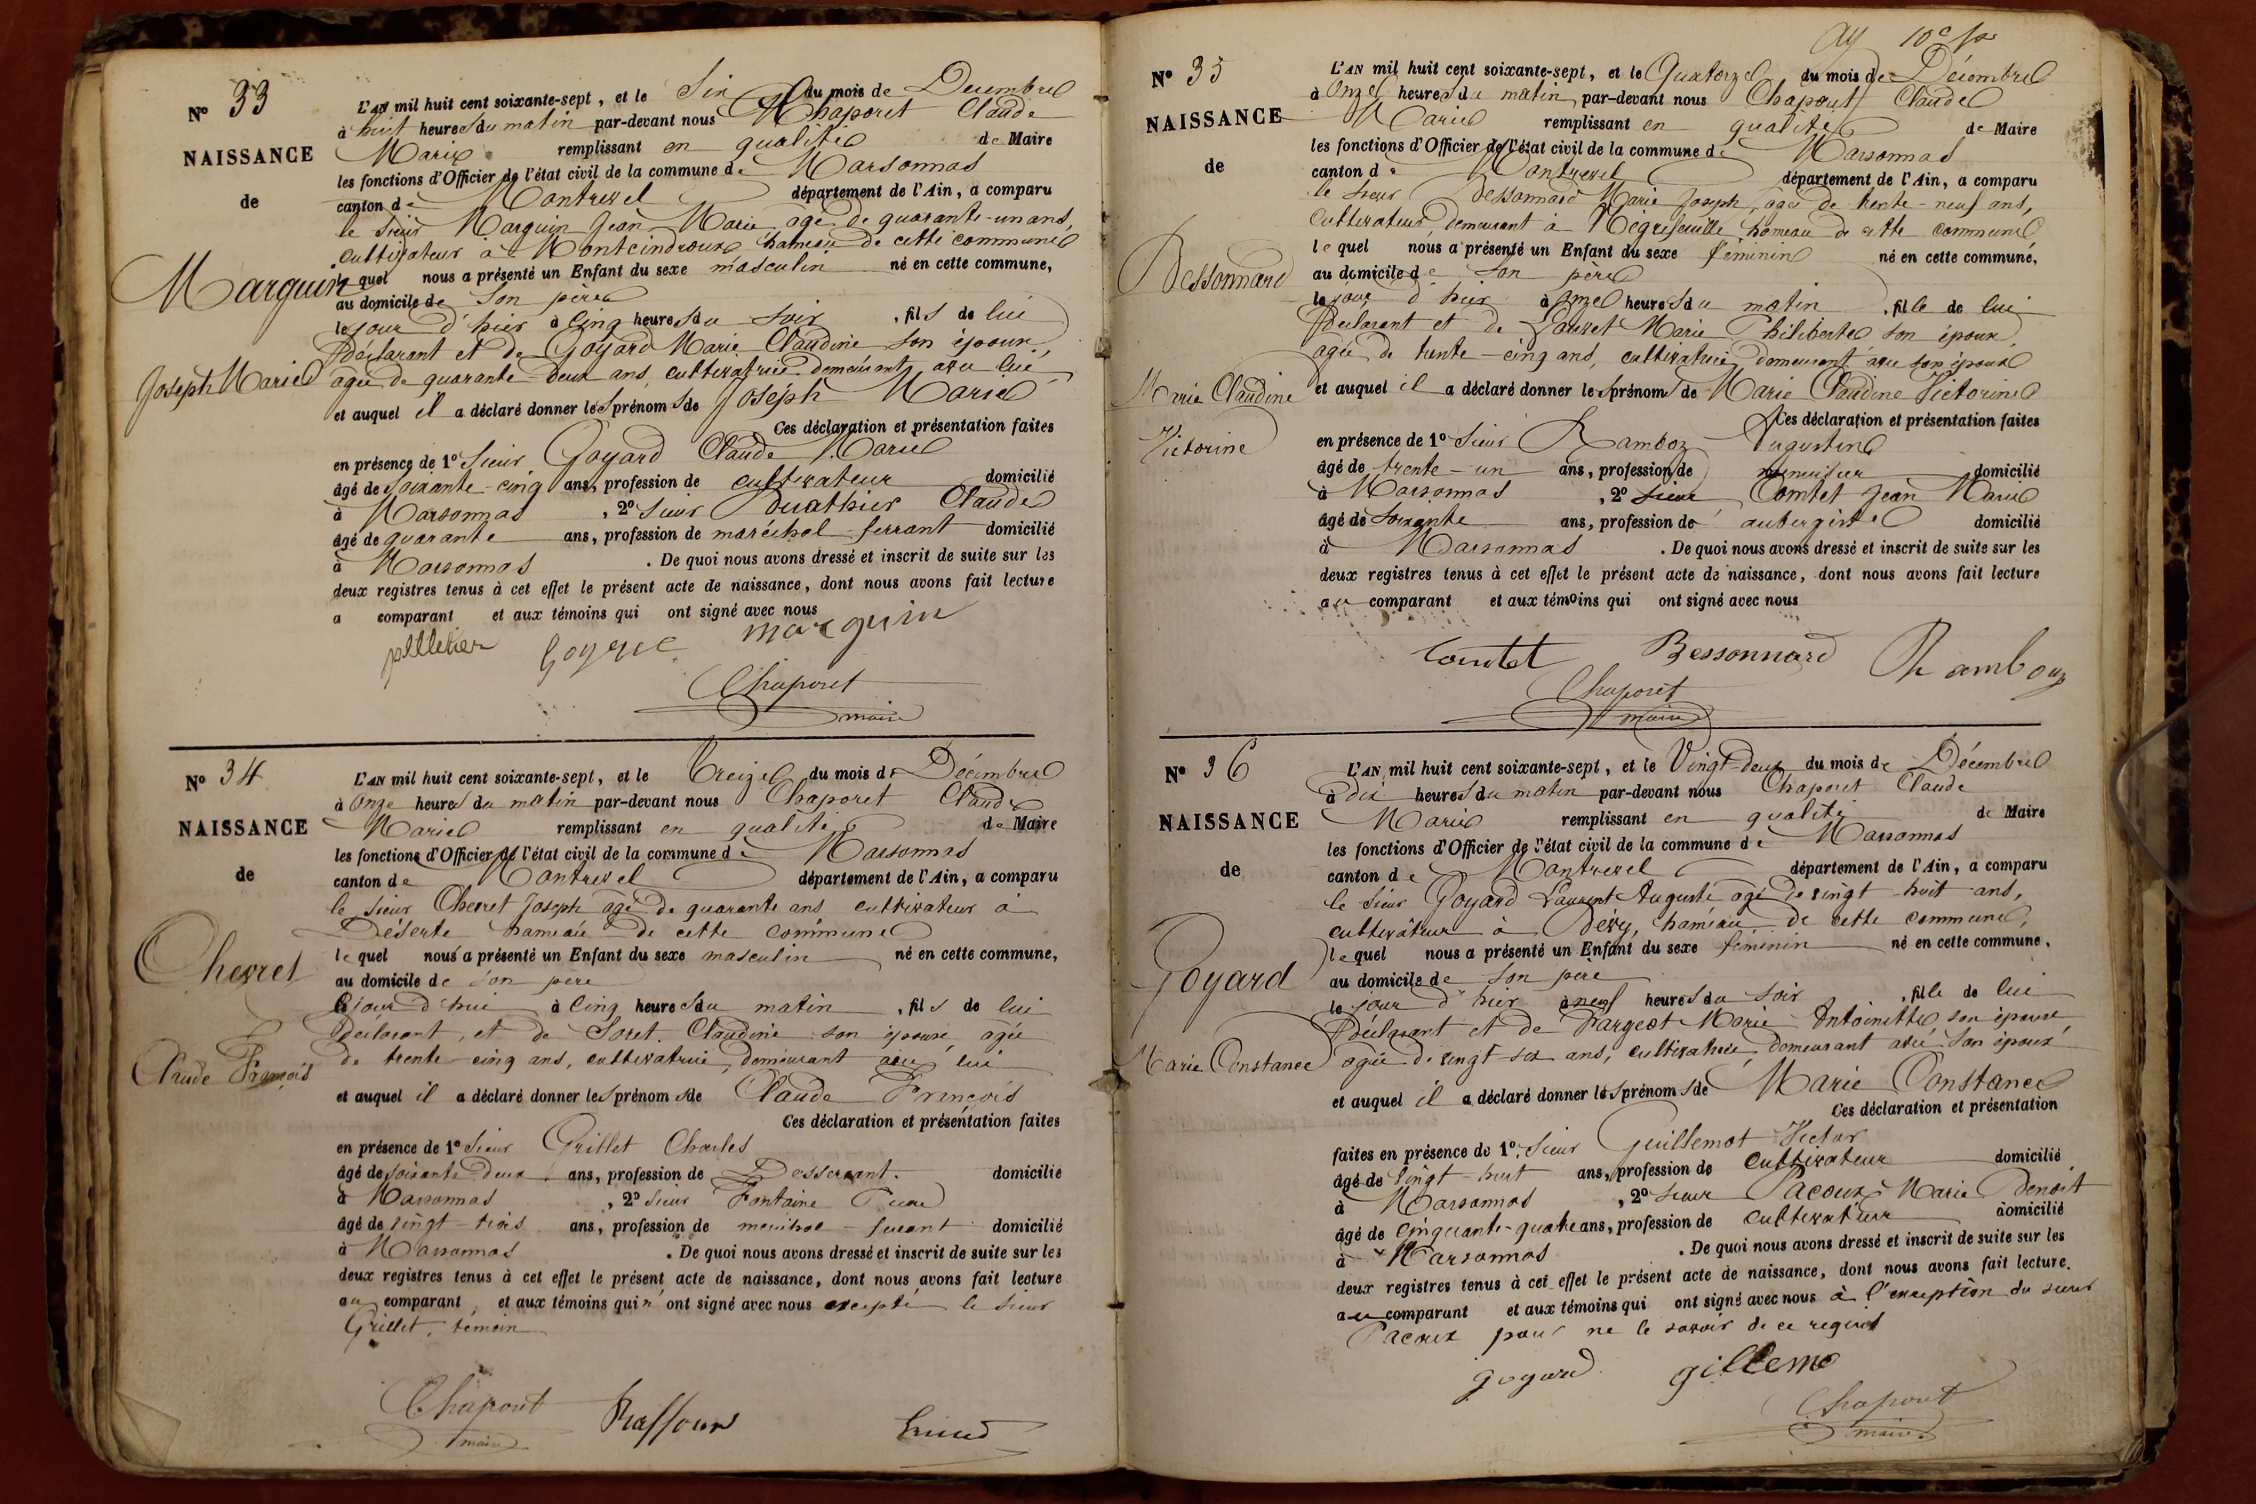 N° 33
NAISSANCE
de
Marguin
Joseph Marie
L'AN mil huit cent soixante-sept, et le Six du mois de Décembre
à huit heures du matin par-devant nous Chaporet Claude
Marie remplissant en qualité de Maire
les fonctions d'Officier de l'état civil de la commune de Marsonnas
canton de Montrevel département de l'Ain, a comparu
le sieur Marguin Jean Marie, agé de quarante-un ans,
cultivateur à Montcindroux hameau de cette commune
lequel nous a présenté un Enfant du sexe masculin né en cette commune,
au domicile de son père
le jour d'hier à cinq heures du soir, fils de lui
Déclarant et de Goyard Marie Claudine son épouse,
agée de quarante-deux ans, cultivatrice demeurant avec lui
et auquel il a déclaré donner les prénoms de Joseph Marie
Ces déclaration et présentation faites
en présence de 1° Sieur Goyard Claude Marie
âgé de soixante-cinq ans, profession de cultivateur domicilié
à Marsonnas, 2° Sieur Buathier Claude
âgé de quarante ans, profession de maréchal-ferrant domicilié
à Marsonnas. De quoi nous avons dressé et inscrit de suite sur les
deux registres tenus à cet effet le présent acte de naissance, dont nous avons fait lecture
a comparant et aux témoins qui ont signé avec nous
pelletier marguin
Chaporet
maire
N° 34
NAISSANCE
de
Chevret
Claude François
L'AN mil huit cent soixante-sept, et le Treize du mois de Décembre
à onze heures du matin par-devant nous Chaporet Claude
Marie remplissant en qualité de Maire
les fonctions d'Officier de l'état civil de la commune de Marsonnas
canton de Montrevel département de l'Ain, a comparu
le sieur Chevret Joseph agé de quarante ans cultivateur à
Déserte hameau de cette commune
lequel nous a présenté un Enfant du sexe masculin né en cette commune,
au domicile de son père
le jour d'hui à cinq heures du matin, fils de lui
Déclarant, et de Soret Claudine son épouse, agée
de trente-cinq ans, cultivatrice, demeurant avec lui
et auquel il a déclaré donner les prénoms de Claude François
Ces déclaration et présentation faites
en présence de 1° Sieur Grillet Charles
âgé de soixante-deux ans, profession de Desservant. domicilié
à Marsonnas, 2° Sieur Fontaine
âgé de vingt-trois ans, profession de maréchal-ferrant domicilié
à Marsonnas. De quoi nous avons dressé et inscrit de suite sur les
deux registres tenus à cet effet le présent acte de naissance, dont nous avons fait lecture
au comparant, et aux témoins qui n'ont signé avec nous excepté le sieur
Grillet, témoin
Chaporet
maire
N° 35
NAISSANCE
de
Bessonnard
Marie Claudine
Victorine
L'AN mil huit cent soixante-sept, et le Quatorze du mois de Décembre
à Onze heures du matin par-devant nous Chaporet Claude
Marie remplissant en qualité de Maire
les fonctions d'Officier de l'état civil de la commune de Marsonnas
canton de Montrevel département de l'Ain, a comparu
le sieur Bessonnard Marie Joseph, agé de trente-neuf ans,
cultivateur, demeurant à Nègrefeuille, hameau de cette commune
lequel nous a présenté un Enfant du sexe féminin né en cette commune,
au domicile de son père
le jour d'hier à onze heures du matin, fille de lui
Déclarant et de Marie Philiberte son épouse,
agée de trente-cinq ans, cultivatrice demeurant avec son époux
et auquel il a déclaré donner les prénoms de Marie Claudine Victorine
Ces déclaration et présentation faites
en présence de 1° Sieur Ramboz Augustin
âgé de trente-un ans, profession de menuisier domicilié
à Marsonnas, 2° Sieur Comtet Jean Marie
âgé de soixante ans, profession de aubergiste domicilié
à Marsonnas. De quoi nous avons dressé et inscrit de suite sur les
deux registres tenus à cet effet le présent acte de naissance, dont nous avons fait lecture
au comparant et aux témoins qui ont signé avec nous
Comtet Bessonnard
Chaporet
maire
N° 36
NAISSANCE
de
Goyard
Marie Constance
L'AN mil huit cent soixante-sept, et le Vingt-deux du mois de Décembre
à dix heures du matin par-devant nous Chaporet Claude
Marie remplissant en qualité de Maire
les fonctions d'Officier de l'état civil de la commune de Marsonnas
canton de Montrevel département de l'Ain, a comparu
le sieur Goyard Laurent Auguste agé de vingt huit ans,
cultivateur à hameau de cette commune,
lequel nous a présenté un Enfant du sexe féminin né en cette commune.
au domicile de son père
le jour d'hier à neuf heures du soir, fille de lui
Déclarant et de Fargeot Marie Antoinette son épouse
agée de vingt-six ans, cultivatrice, demeurant avec son époux
et auquel il a déclaré donner les prénoms de Marie Constance
Ces déclaration et présentation
faites en présence de 1° Sieur Guillemot Victor
âgé de vingt-huit ans, profession de cultivateur domicilié
à Marsonnas, 2° Sieur Pacoux Marie Benoit
âgé de cinquante-quatre ans, profession de cultivateur domicilié
à Marsonnas. De quoi nous avons dressé et inscrit de suite sur les
deux registres tenus à cet effet le présent acte de naissance, dont nous avons fait lecture.
au comparant et aux témoins qui ont signé avec nous à l'exception du sieur
Pacoux pour ne le savoir de ce requis
goyard gillemo
Chaporet
maire